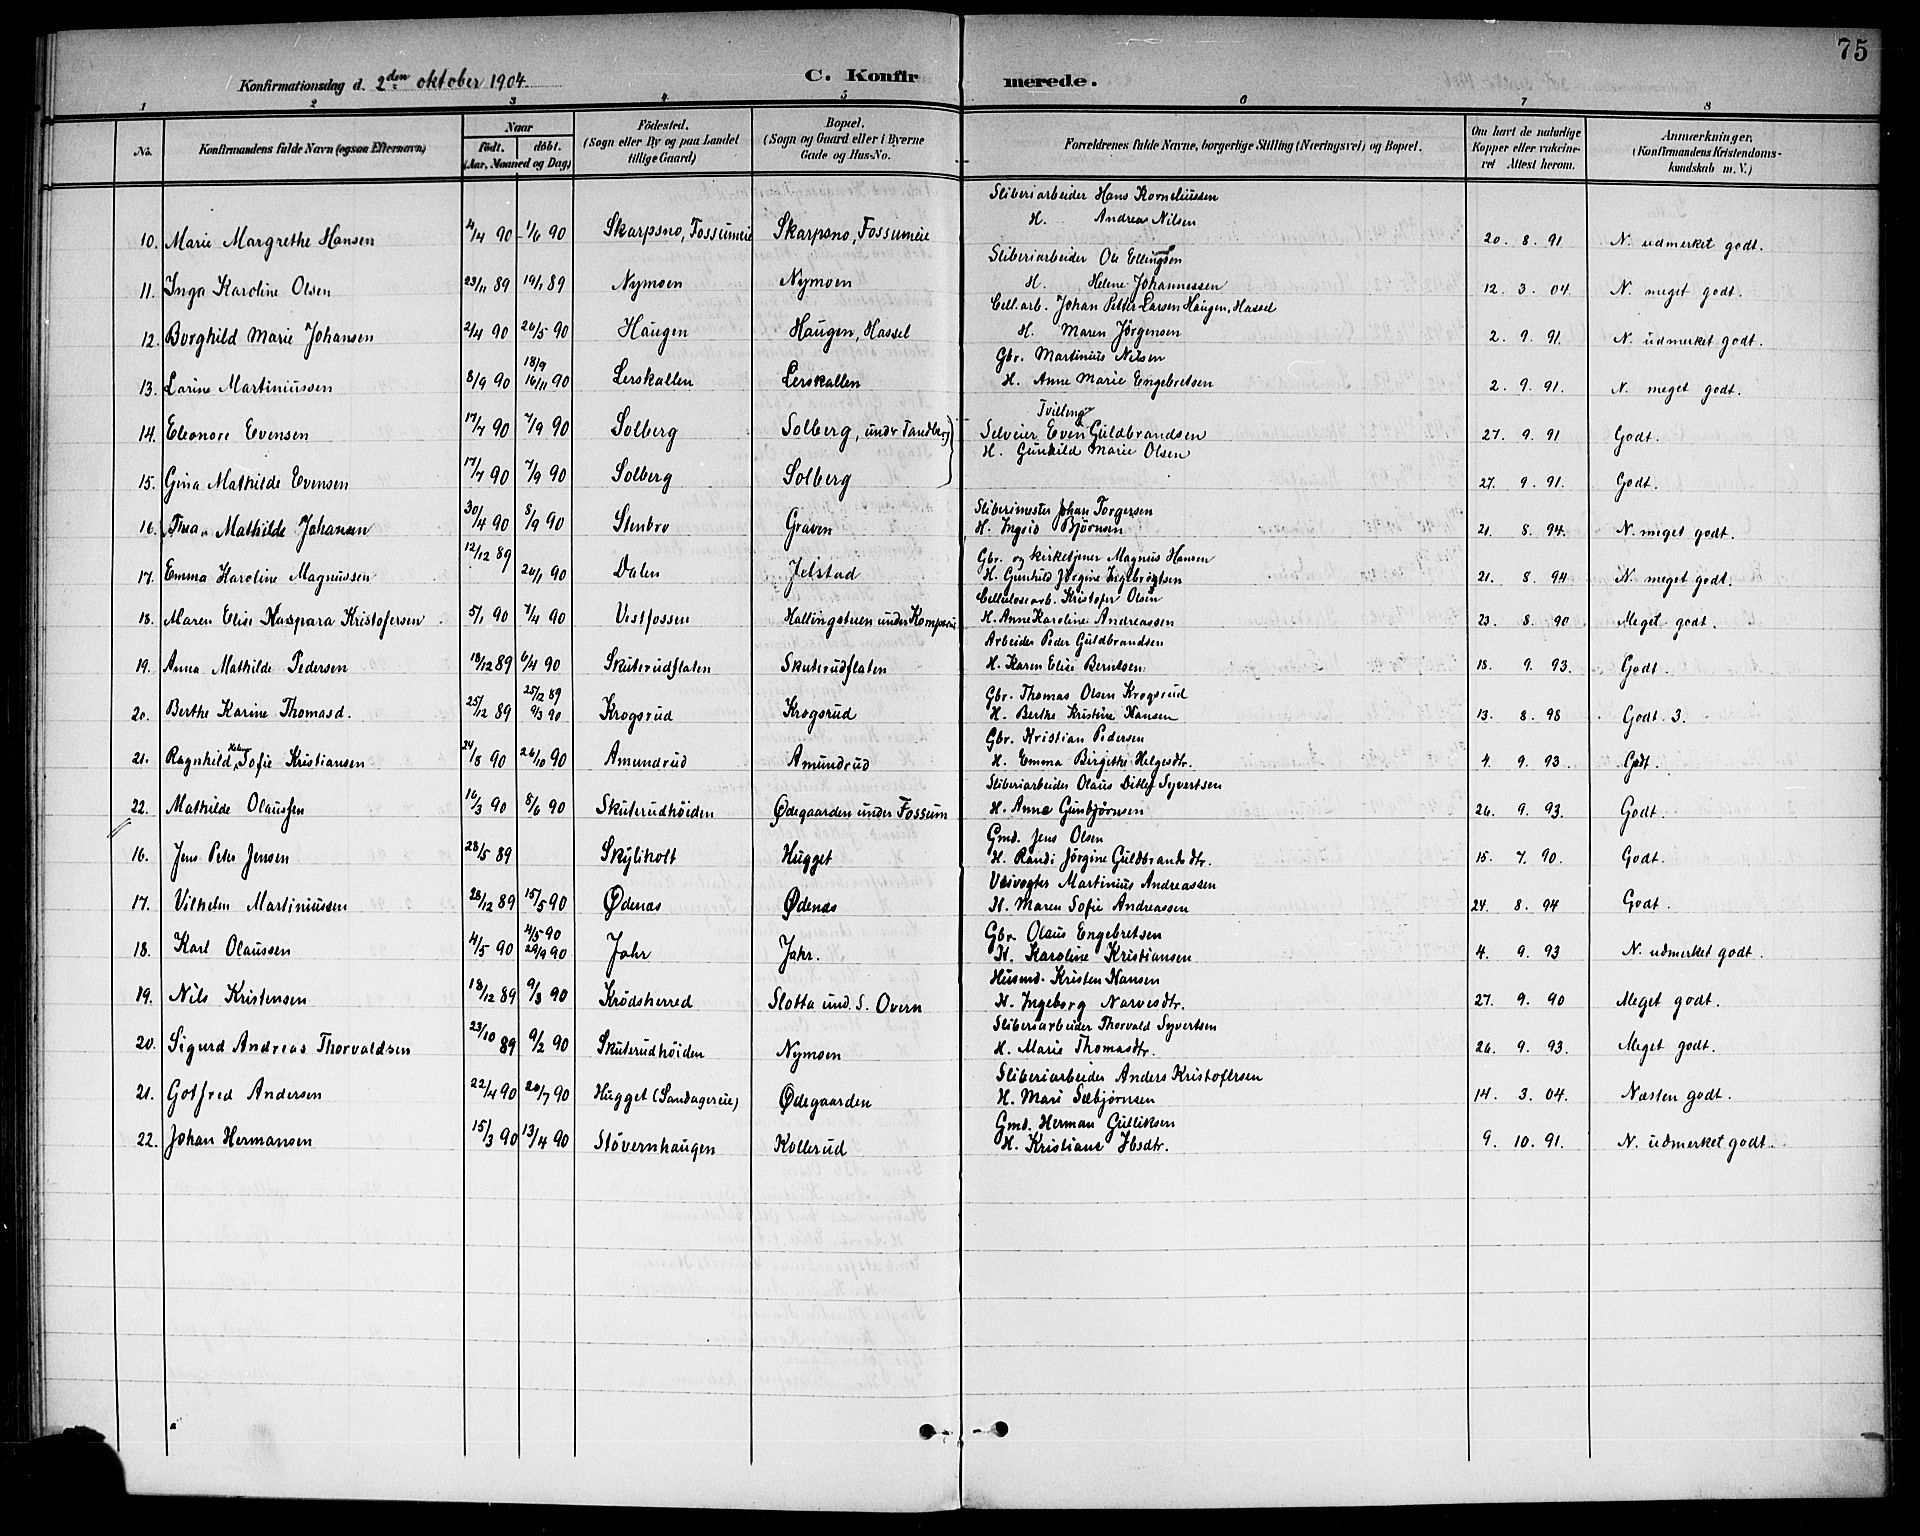 75
Konfirmationsdag d. 2den oktober 1904.
C. Konfirmerede.
1 2 3 4 5 6 7 8
No. Konfirmandens fulde Navn (ogsaa Efternavn)
Naar
födt. döbt.
(Aar, Maaned og Dag)
Födested.
(Sogn eller By og paa Landet
tillige Gaard)
Bopæl.
(Sogn og Gaard eller i Byerne
Gade og Hus-No.
Forældrenes fulde Navne, borgerlige Stilling (Næringsvei) og Bopæl.
Om havt de naturlige
Kopper eller vakcine-
ret Attest herom.
Anmærkninger.
(Konfirmandens Kristendoms-
kundskab m. V.)
Sliberiarbeider Hans Korneliussen
H. Andrea Nilsen
10. Marie Margrethe Hansen 4/4 90 1/6 90 Skarpsno, Fossumeie Skarpsno, Fossumeie 20. 8. 91 N. udmerket godt.
Sliberiarbeider Ole Ellingsen
11. Inga Karoline Olsen 23/11 89 19/1 89 Nymoen Nymoen H. Helene Johannessen 12. 3. 04. N. meget godt.
Cell. arb. Johan Petter Larsen Haugen, Hassel
12. Borghild Marie Johansen 2/4 90 26/5 90 Haugen Haugen, Hassel H. Maren Jörgensen 2. 9. 91. N. udmerket godt.
Gbr. Martinius Nilsen
13. Larine Martiniussen 8/9 90 18/9 16/11 90 Lerskallen Lerskallen H. Anne Marie Engebretsen 2. 9. 91. N. meget godt.
Tvillinge
14. Eleonore Evensen 17/7 90 7/9 90 Solberg Solberg, under Tandberg Selveier Even Guldbrandsen 27. 9. 91 Godt.
H. Gunhild Marie Olsen
15. Gina Mathilde Evensen 17/7 90 7/9 90 Solberg Solberg 27. 9. 91. Godt.
Sliberimester Johan Torgersen
16. Thea Mathilde Johansen 30/4 90 8/9 90 Stenbro Graven H. Ingeid Björnsen 21. 8. 94. N. meget godt.
Gbr. og kirketjener Magnus Hansen
17. Emma Karoline Magnussen 12/12 89 26/1 90 Dalen Jelstad H. Gunhild Jörgine Ingebrigtsen 21. 8. 94 N. meget godt.
Cellulosearb. Kristofer Olsen
18. Maren Elise Kaspara Kristofersen 5/1 90 7/4 90 Vestfossen Hallingstuen under Komperud H. Anne Karoline Andreassen 23. 8. 90 Meget godt.
Arbeider Peder Guldbrandsen
19. Anna Mathilde Pedersen 18/12 89 6/4 90 Skuterudflaten Skuterudflaten H. Karen Elise Berntsen 18. 9. 93. Godt.
Gbr. Thomas Olsen Krogsrud
20. Berthe Karine Thomasd. 25/12 89 25/12 89 9/3 90 Krogsrud Krogsrud H. Berthe Kristine Hansen 13. 8. 98 Godt. 3.
Gbr. Kristian Pedersen
21. Ragnhild Helene Sofie Kristiansen 24/8 90 26/10 90 Amundrud Amundrud H. Emma Birgithe Helgesdtr. 4. 9. 93. Godt.
Sliberiarbeider Olaus Ditlef Syvertsen
22. Mathilde Olaussen 16/3 90 8/6 90 Skuterudhöiden Ødegaarden under Fossum H. Anne Gunbjörnsen 26. 9. 93. Godt.
Gmd. Jens Olsen
16. Jens Peter Jensen 28/5 89 Skyliholt Hugget H. Randi Jörgine Guldbrandsdtr. 15. 7. 90. Godt.
Veivogter Martinius Andreassen
17. Vilhelm Martiniussen 28/12 89 15/5 90 Ødenæs Ødenæs H. Maren Sofie Andreassen 24. 8. 94 Godt.
Gbr. Olaus Engebretsen
18. Karl Olaussen 4/5 90 4/5 90 29/9 90 Jahr Jahr. H. Karoline Kristiansen 4. 9. 93 N. udmerket godt.
Husmd. Kristen Hansen
19. Nils Kristensen 18/12 89 9/3 90 Krödsherred Slotta und. S. Overn H. Ingeborg Narvesdtr. 27. 9. 90 Meget godt.
Sliberiarbeider Thorvald Syvertsen
20. Sigurd Andreas Thorvaldsen 23/10 89 9/2 90 Skuterudhöiden Nymoen H. Marie Thomasdtr. 26. 9. 93. Meget godt.
Sliberiarbeider Anders Kristofersen
21. Gotfred Andersen 22/4 90 20/7 90 Hugget (Sandagereie) Ødegaarden H. Mari Sæbjörnsen 14. 3. 04. Næsten godt.
Gmd. Herman Gulliksen
22. Johan Hermansen 15/3 90 13/4 90 Stövernhaugen Kollerud H. Kristiane Ibsdtr. 9. 10. 91. N. udmerket godt.